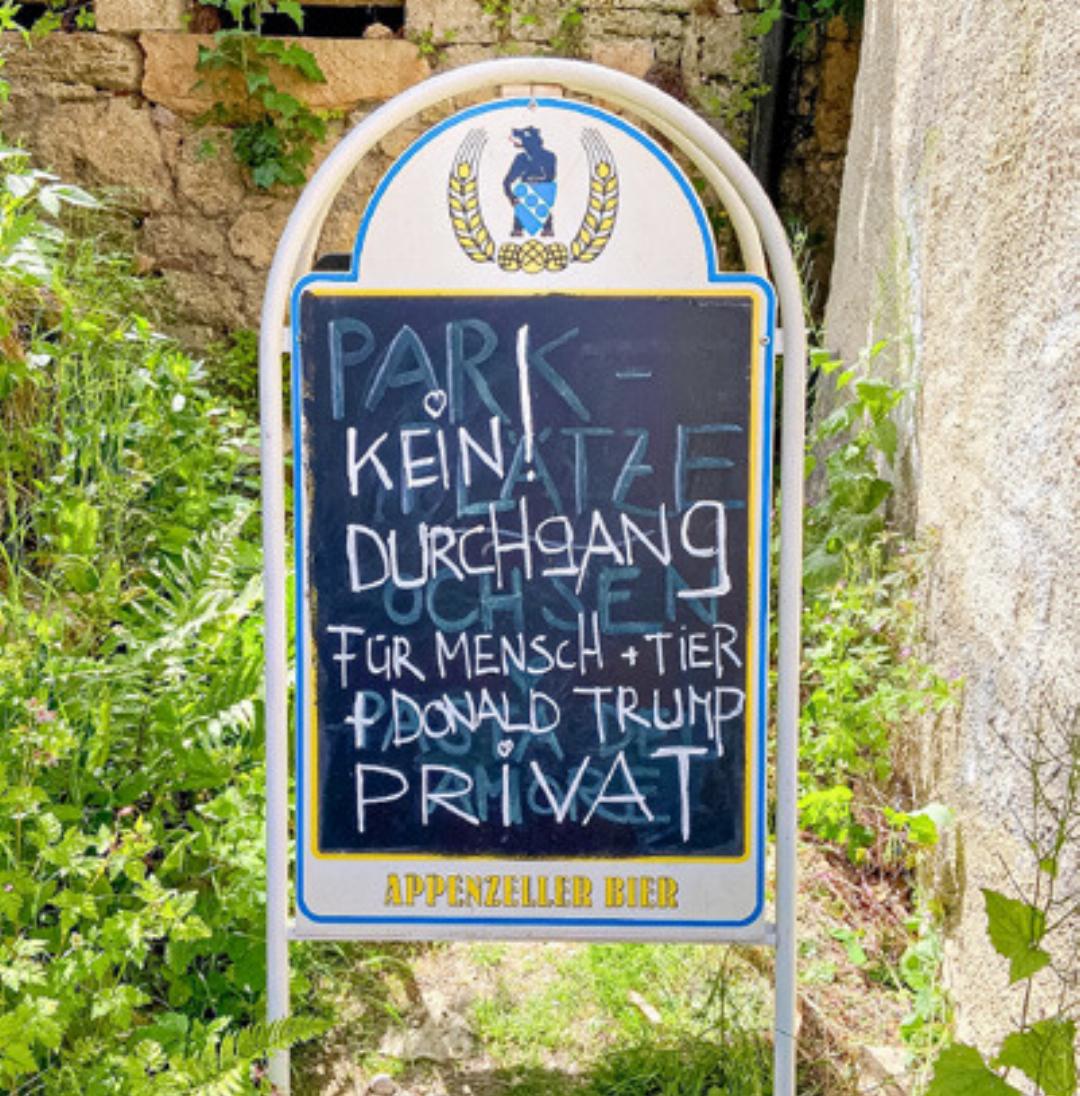 PARK-
KEiN!
PLÄTZE
DURCHgANg
OCHSEN
FÜR MENSCH + TiER
+ DONALD TRUMP
PASTA DEL
PRiVAT
AMORE
APPENZELLER BIER